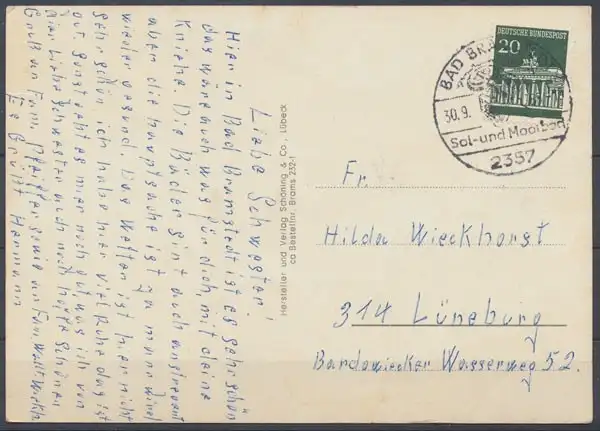 Liebe Schwester!
Hier in Bad Bramstedt ist es sehr schön
das wäre auch was für dich, mit deine
Kniehe. Die Bäder sint auch anstrengent
aber die hauptsache ist ja mann wirt
wieder gesund. Das Wetter ist hier nicht
sehr schön. ich habe hier viel Ruhe das ist
gut, sonst geht es mir noch gut, was ich von
dier Liebe Schwester auch noch hoffe Schönen
Gruß von Fam. sowie von Frau
Es Grüßt Hermann
Hersteller und Verlag Schöning & Co., Lübeck
ca Bestellnr. Brams 232-1
DEUTSCHE BUNDESPOST
20
BAD BRA
30.9.
Sol- und Moorbad
2357
Fr.
Hilda Wieckhorst
314 Lüneburg
Bardowiecker Wasserweg 52.